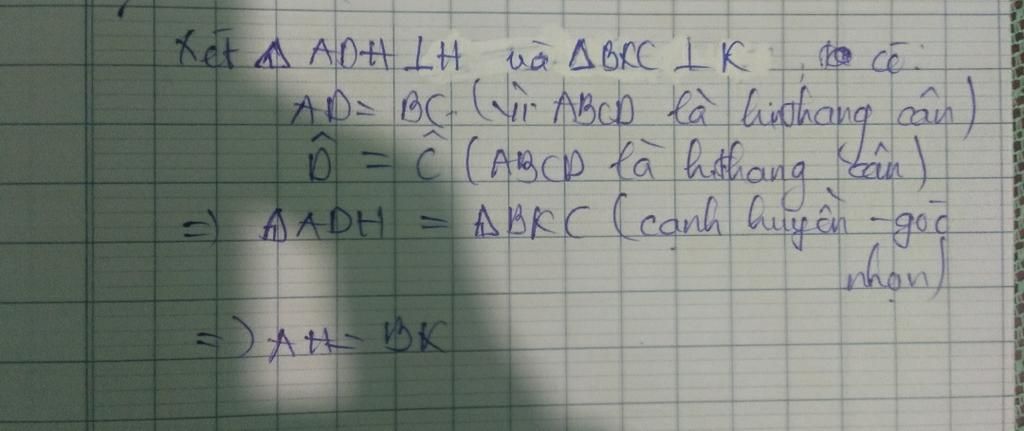 Xét Δ ADH ⊥ H và Δ BKC ⊥ K, ta có:
AD = BC (vì ABCD là hìthang cân)
D̂ = Ĉ (ABCD là hthang cân)
=) Δ ADH = Δ BKC (cạnh huyền - góc
nhọn)
=) AH = BK